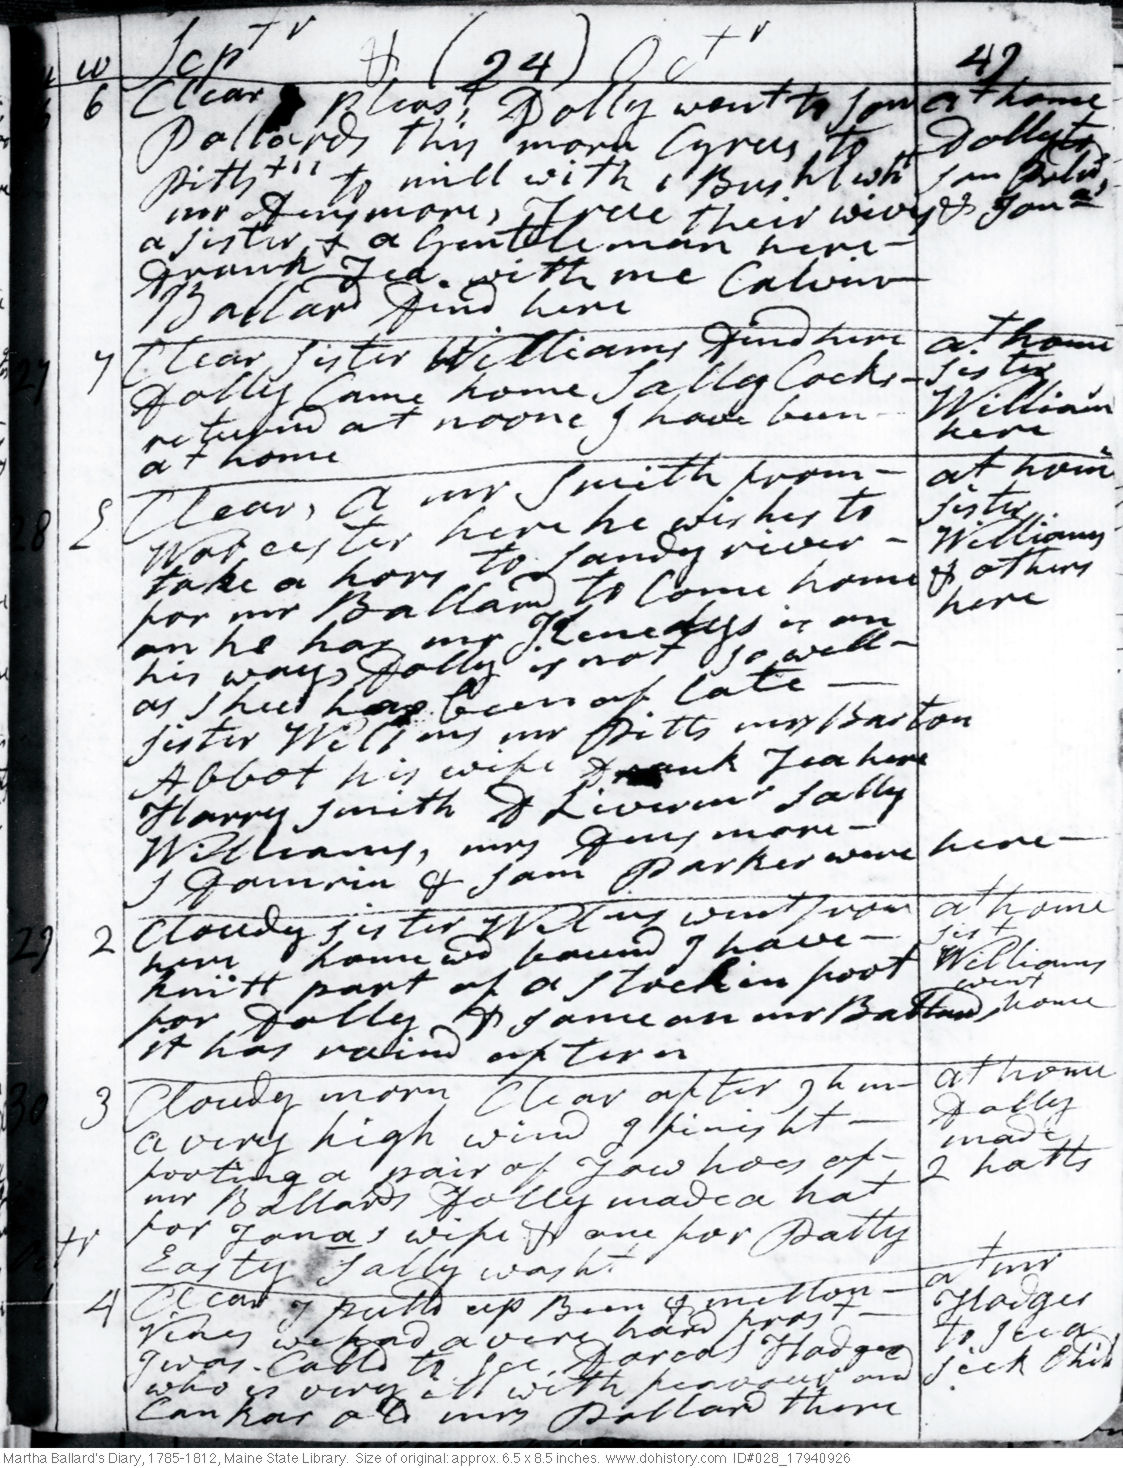 w Sept r & (24) Octr 42
6 Clear & Pleast, Dolly went to son at home
Pollards this morn Cyrus to Dolly to
Pitts to mill with 1 Bushl wht son Polds
mr Densmore, Treue their wives & Jonas
a sister & a Gentleman here
Drank Tea with me Calvin
Ballard dind here
27 7 Clear sister Williams dind here at home
Dolly Came home Sally Cocks sister
returnd at noone I have been William
at home here
28 Clear, a mr Smith from at home
Worcester here he wishes to sister
take a hors to Sandy river Williams
for mr Ballard to Come home & others
on he has mr Kenedys is on here
his way, Dolly is not so well
as shee has been of late
sister Willims mr Pitts mrs Barton
Abbot his wife Drank Tea here
Harry Smith & Livermr Sally
Williams, mrs Densmore
S Damrin & Sam Parker were here
29 2 Cloudy sister Willms went from at home
here homewd bound I have sist
knitt part of a Stockin foot Williams
for Dolly & some on mr Ballards, went home
it has raind aftern
30 3 Cloudy morn Clear after 9 h m at home
a very high wind I finisht Dolly
footing a pair of Tow hoes of made
mr Ballards Dolly made a hat 2 hatts
for Jonas wife & one for Patty
Easty Sally washt
Octr
1 4 Clear I pulld up Been & mellon at mr
Vines we had a very hard frost Hodges
I was Calld to See Dorcas Hodges to see a
who is very ill with feavour and sick Child
Cankar old mrs Pollard there
Martha Ballard's Diary, 1785-1812, Maine State Library. Size of original: approx. 6.5 x 8.5 inches. www.dohistory.com ID#028_17940926